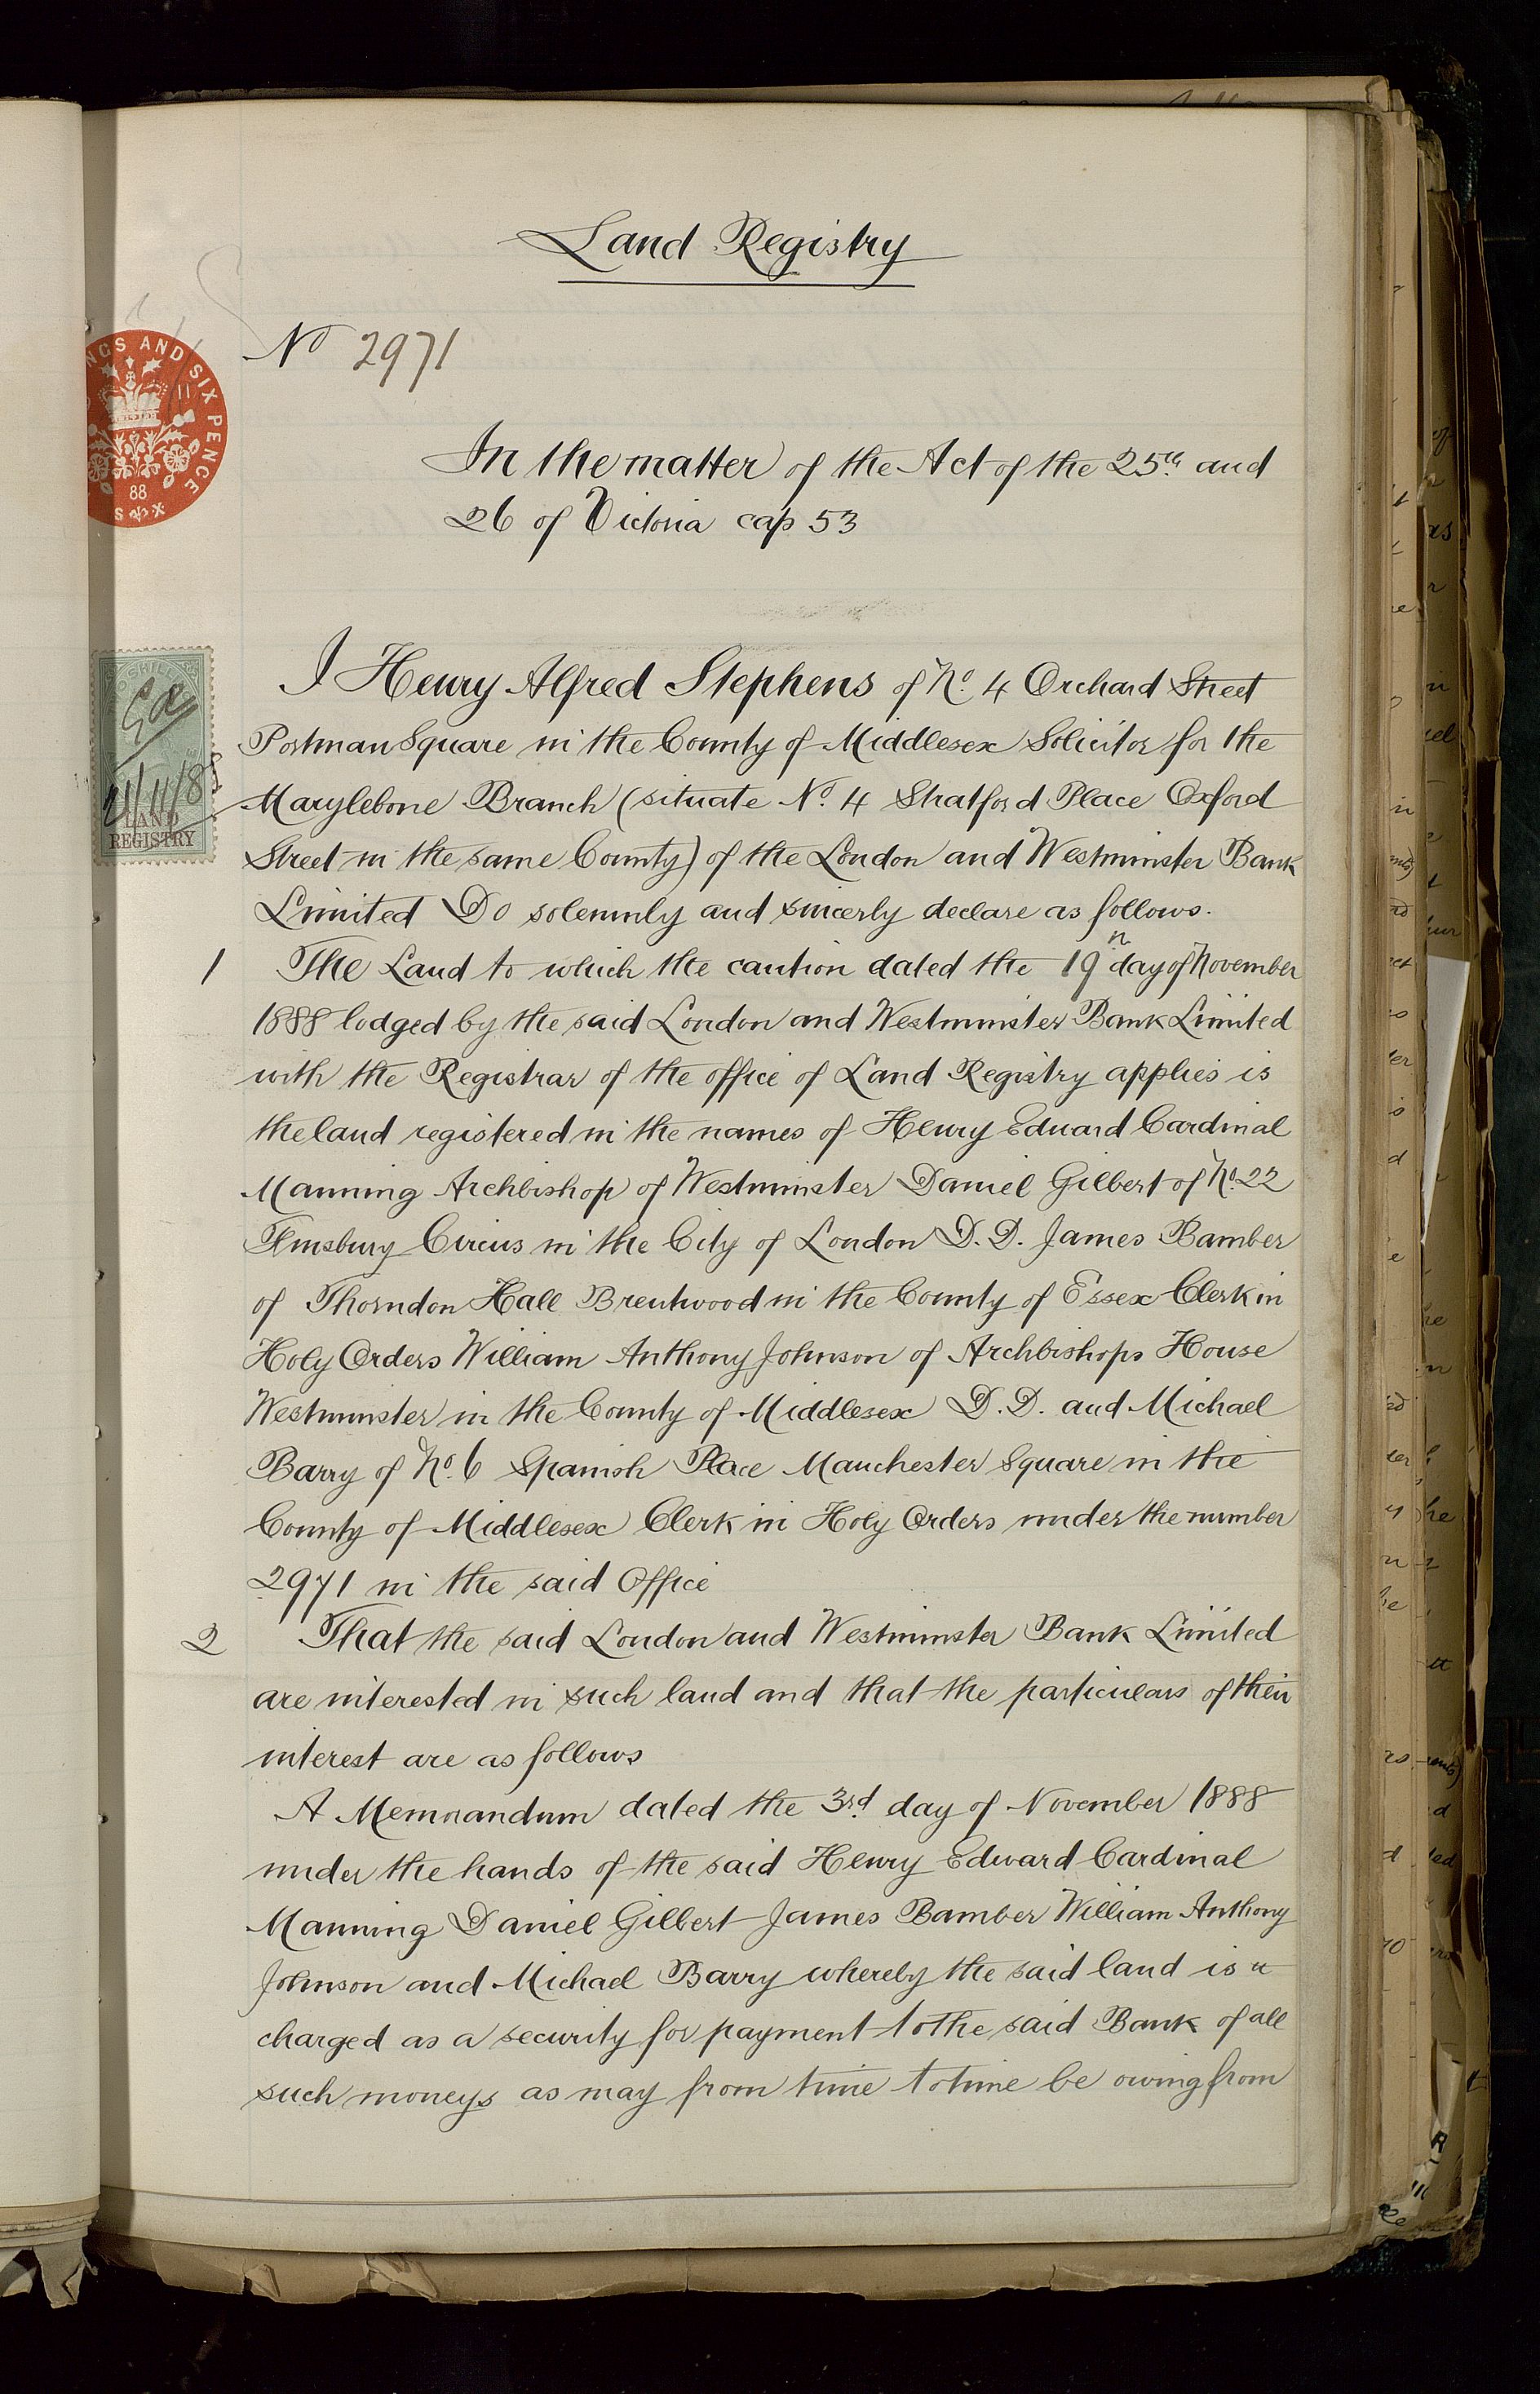 Land Registry
No 2971
NGS AND SIX PENCE
88
In the matter of the Act of the 25th and
26 of Victoria cap 53
I Henry Alfred Stephens of No. 4 Orchard Street
Portman Square in the County of Middlesex Solicitor for the
Marylebone Branch (situate No. 4 Stratford Place Oxford
Street in the same County) of the London and Westminster Bank
Limited Do solemnly and sincerly declare as follows.
LAND
REGISTRY
1 The Land to which the caution dated the 19th day of November
1888 lodged by the said London and Westminster Bank Limited
with the Registrar of the office of Land Registry applies is
the land registered in the names of Henry Edward Cardinal
Manning Archbishop of Westminster Daniel Gilbert of No. 22
Finsbury Circus in the City of London D.D. James Bamber
of Thorndon Hall Brentwood in the County of Essex Clerk in
Holy Orders William Anthony Johnson of Archbishops House
Westminster in the County of Middlesex D.D. and Michael
Barry of No. 6 Spanish Place Manchester Square in the
County of Middlesex Clerk in Holy Orders under the number
2971 in the said Office
2 That the said London and Westminster Bank Limited
are interested in such land and that the particulars of their
interest are as follows
A Memorandum dated the 3rd day of November 1888
under the hands of the said Henry Edward Cardinal
Manning Daniel Gilbert James Bamber William Anthony
Johnson and Michael Barry whereby the said land is
charged as a security for payment to the said Bank of all
such moneys as may from time to time be owing from